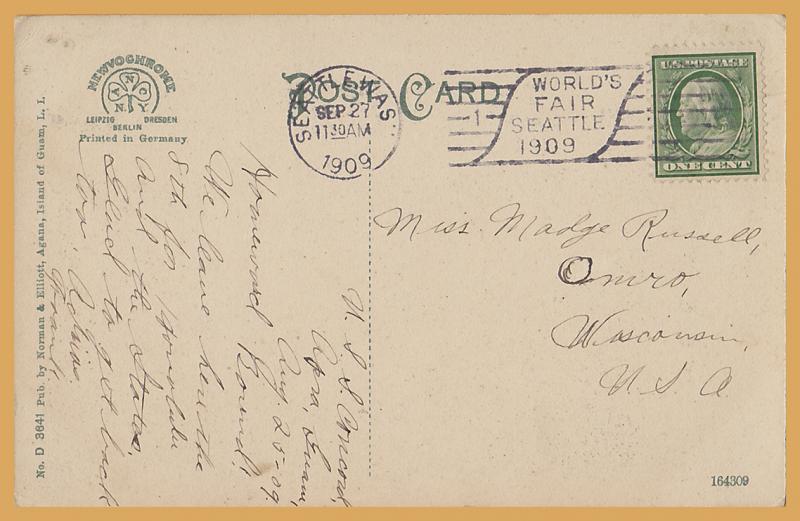 NEWVOCHROME
LEIPZIG DRESDEN
BERLIN
Printed in Germany
POST CARD
SEATTLE, WASH.
SEP 27
11 30 AM
1909
1
WORLD'S
FAIR
SEATTLE
1909
U.S. POSTAGE
ONE CENT
No. D 3641 Pub. by Norman & Elliott, Agana, Island of Guam, L. I.
U. S. S. Concord
Apra, Guam,
Aug 25-09.
Homeward Bound!
We leave here the
8th for Honolulu
and the States.
Glad to get back
too.
Miss Madge Russell,
Omro,
Wisconsin,
U S A
164309